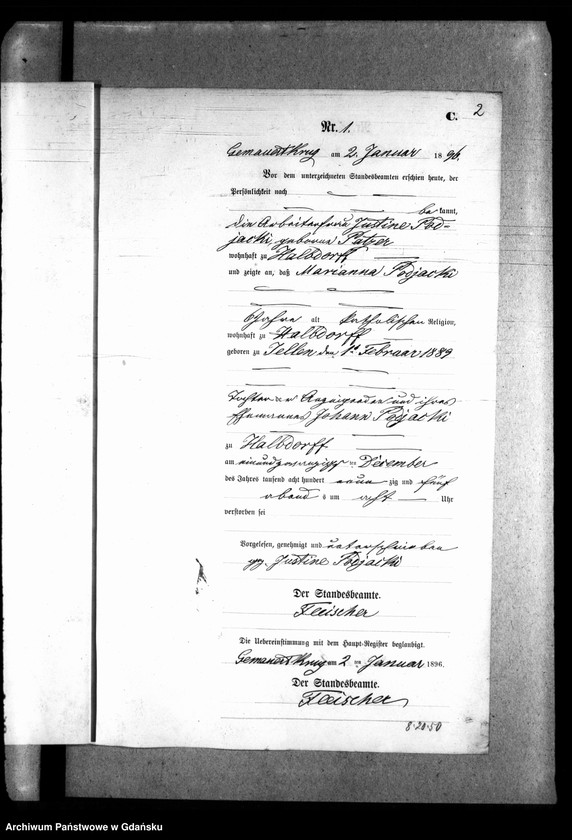 C. 2
Nr. 1.
am 2. Januar 1896.
Vor dem unterzeichneten Standesbeamten erschien heute, der
Persönlichkeit nach
bekannt,
die Arbeiterfrau Justine Pod-
jacki, geborne Patzer
wohnhaft zu Halbdorff
und zeigte an, daß Marianna Podjacki
6 Jahre alt katholischen Religion,
wohnhaft zu Halbdorff
geboren zu Jellen den 1. Februar 1889
Tochter der Anzeigenden und ihres
Ehemannes Johann Podjacki
zu Halbdorff
am einundzwanzigsten Dezember
des Jahres tausend acht hundert neunzig und fünf
abends um acht Uhr
verstorben sei
Vorgelesen, genehmigt und unterschrieben
gez. Justine Podjacki
Der Standesbeamte.
Fleischer
Die Uebereinstimmung mit dem Haupt-Register beglaubigt.
am 2ten Januar 1896.
Der Standesbeamte.
Fleischer
8-20-50
Archiwum Państwowe w Gdańsku